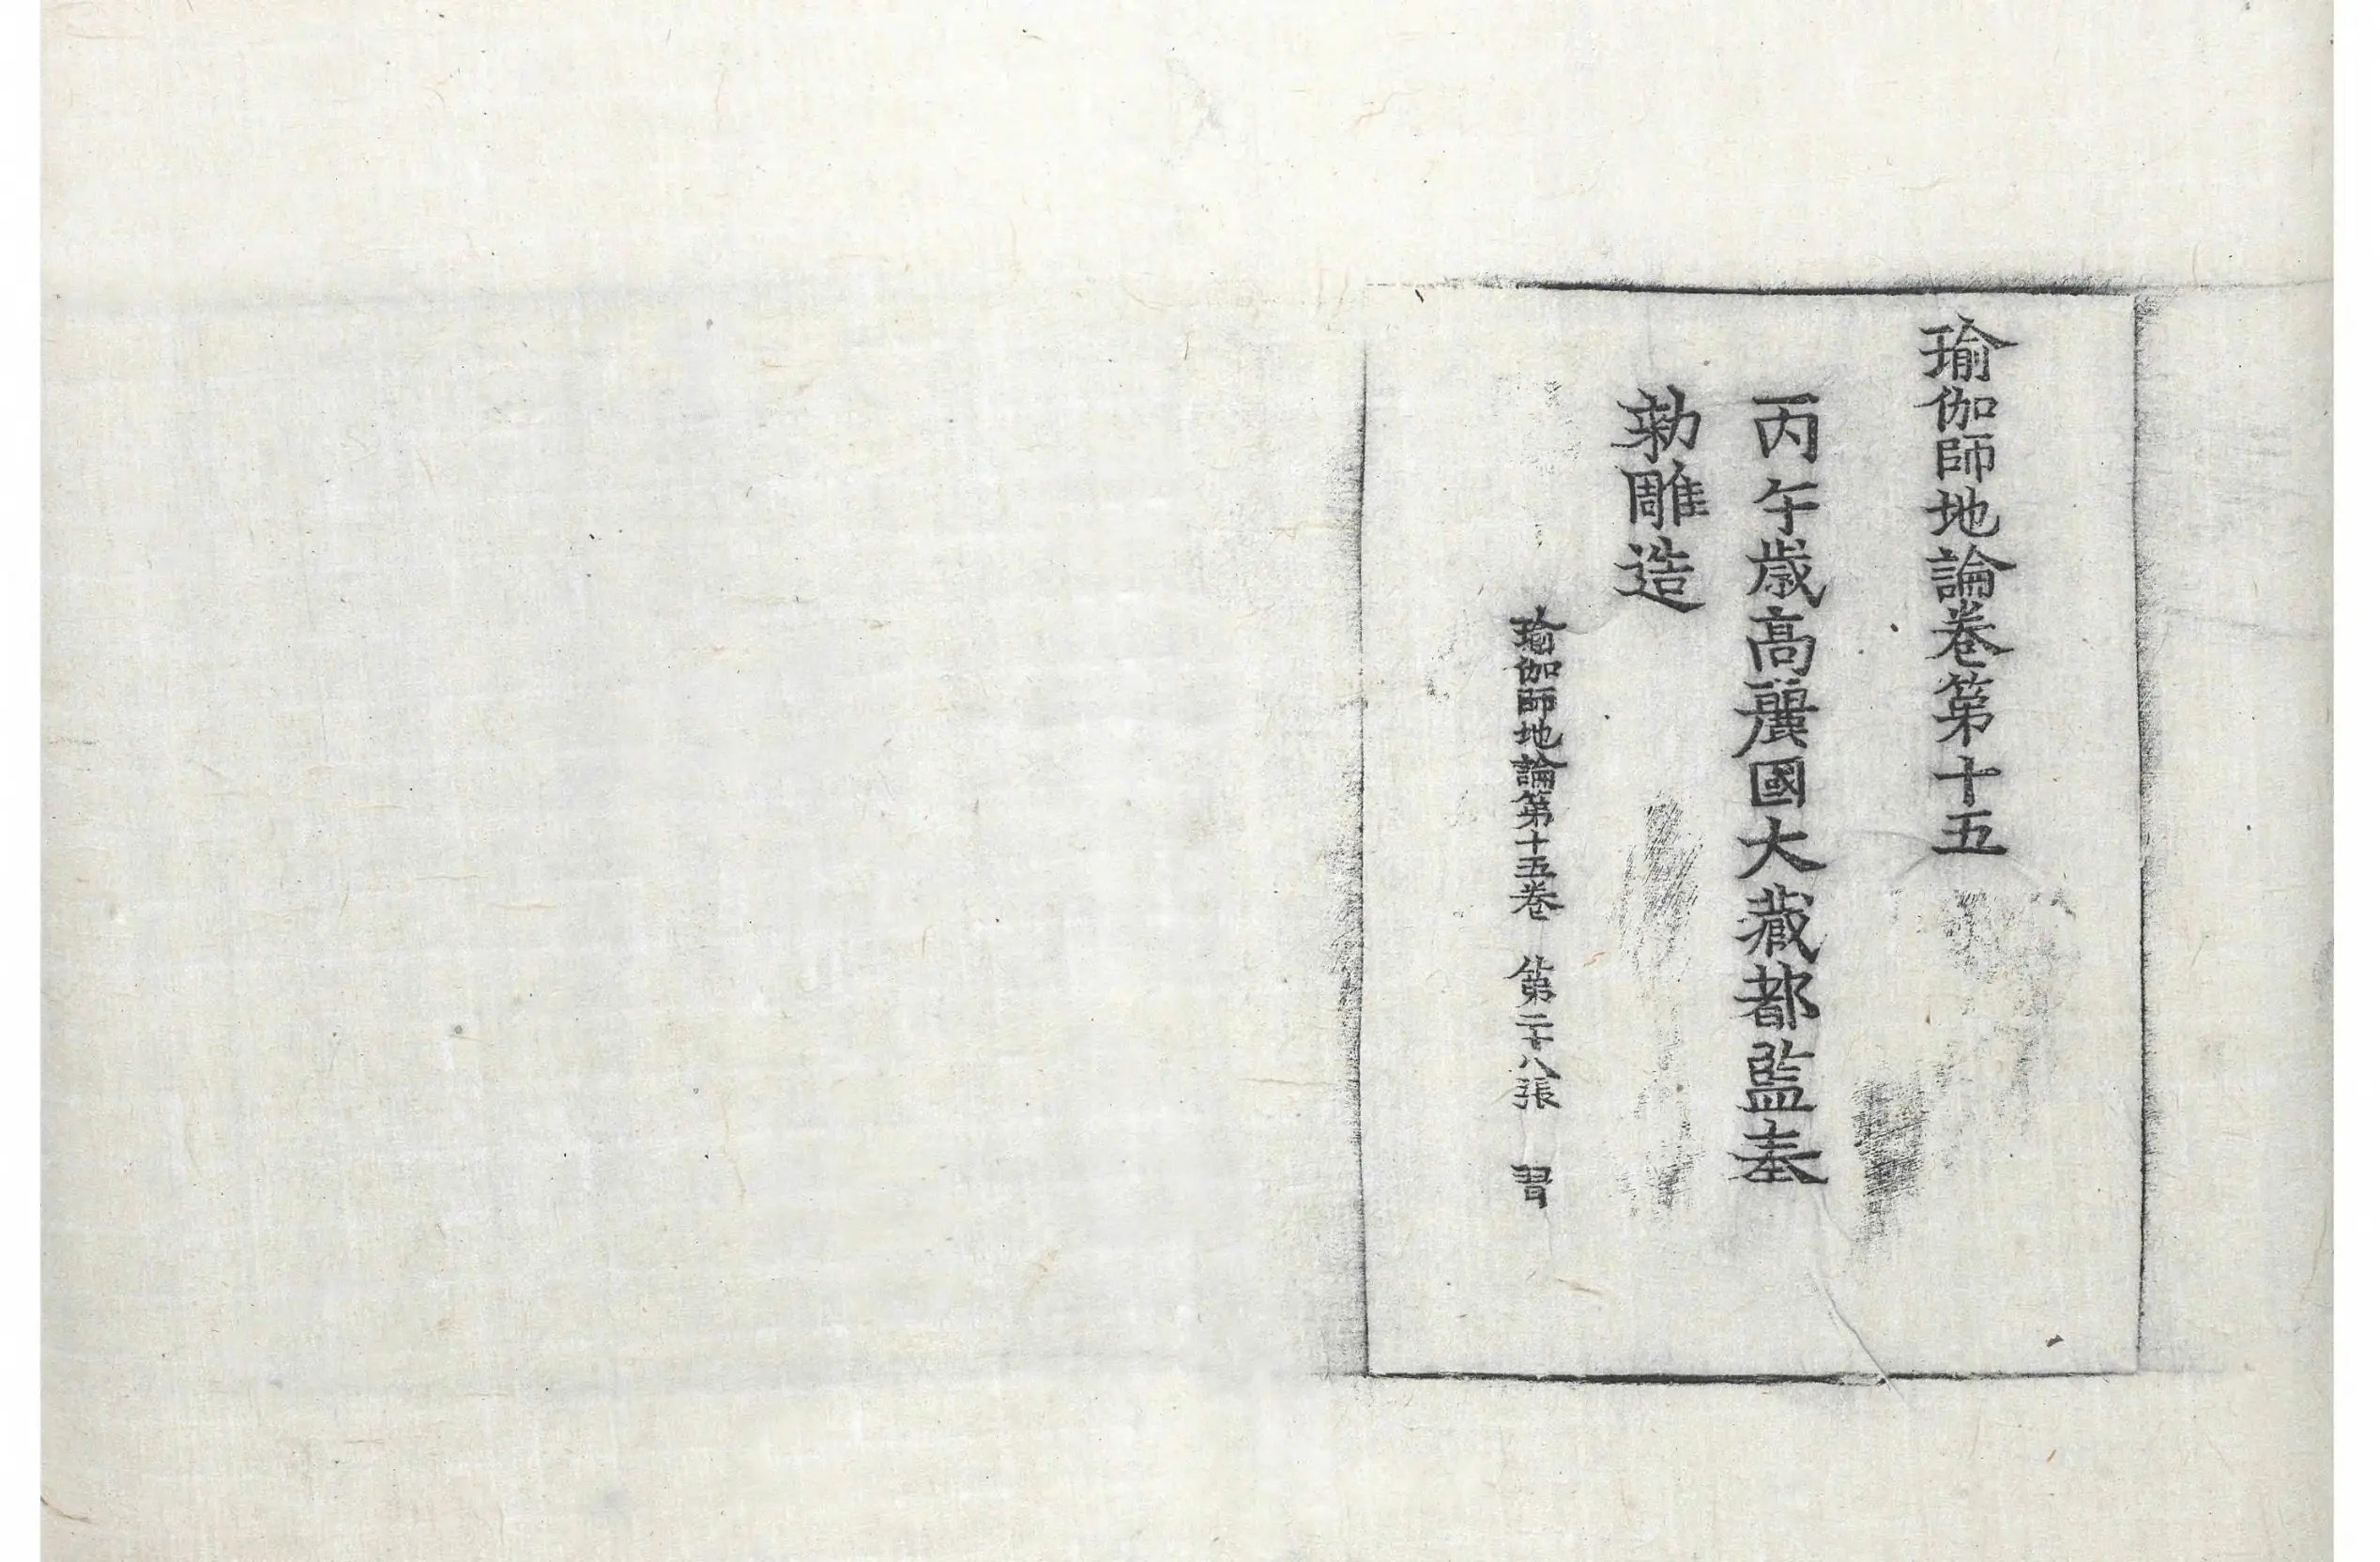 瑜伽師地論卷第十五
丙午歲高麗國大藏都監奉
勑雕造
瑜伽師地論第十五卷 第二十八張 習